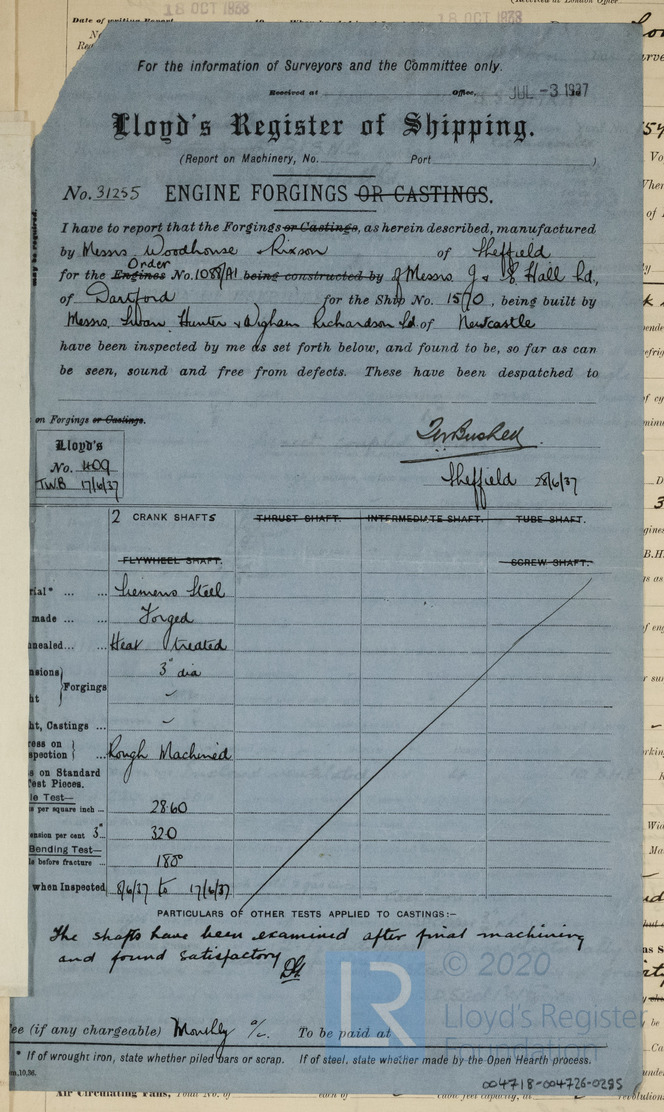 18 OCT 1938
18 OCT 1938
Date of writing Report
For the information of Surveyors and the Committee only.
Received at Office, JUL -3 1937
Lloyd's Register of Shipping.
(Report on Machinery, No. Port )
No. 31255 ENGINE FORGINGS OR CASTINGS.
I have to report that the Forgings or Castings, as herein described, manufactured
by Messrs Woodhouse & Rixson of Sheffield
Order
for the Engines No. 1088/A1 being constructed by of Messrs J & E Hall Ltd.,
of Dartford for the Ship No. 1570, being built by
Messrs. Swan, Hunter & Wigham Richardson Ld. of Newcastle
have been inspected by me as set forth below, and found to be, so far as can
be seen, sound and free from defects. These have been despatched to
may be required.
on Forgings or Castings.
Lloyd's
No. 409
TWB 17/6/37
TWBushell
Sheffield 28/6/37
2 CRANK SHAFTS THRUST SHAFT. INTERMEDIATE SHAFT. TUBE SHAFT.
FLYWHEEL SHAFT. SCREW SHAFT.
rial* Siemens Steel
made Forged
nealed Heat treated
nsions Forgings 3" dia
ht
ht, Castings
ress on
spection Rough Machined
s on Standard
Test Pieces.
le Test—
s per square inch 28.60
ension per cent 3" 32.0
Bending Test—
ls before fracture 180°
when Inspected 8/6/37 to 17/6/37
PARTICULARS OF OTHER TESTS APPLIED TO CASTINGS:-
The shafts have been examined after final machining
and found satisfactory
© 2020
Lloyd's Register
Foundation
ee (if any chargeable) Monthly a/c. To be paid at
* If of wrought iron, state whether piled bars or scrap. If of steel, state whether made by the Open Hearth process.
m.10,36.
004718-004726-0295
Air Circulating Fans, Total No. of each of cubic feet capacity, at revolutions